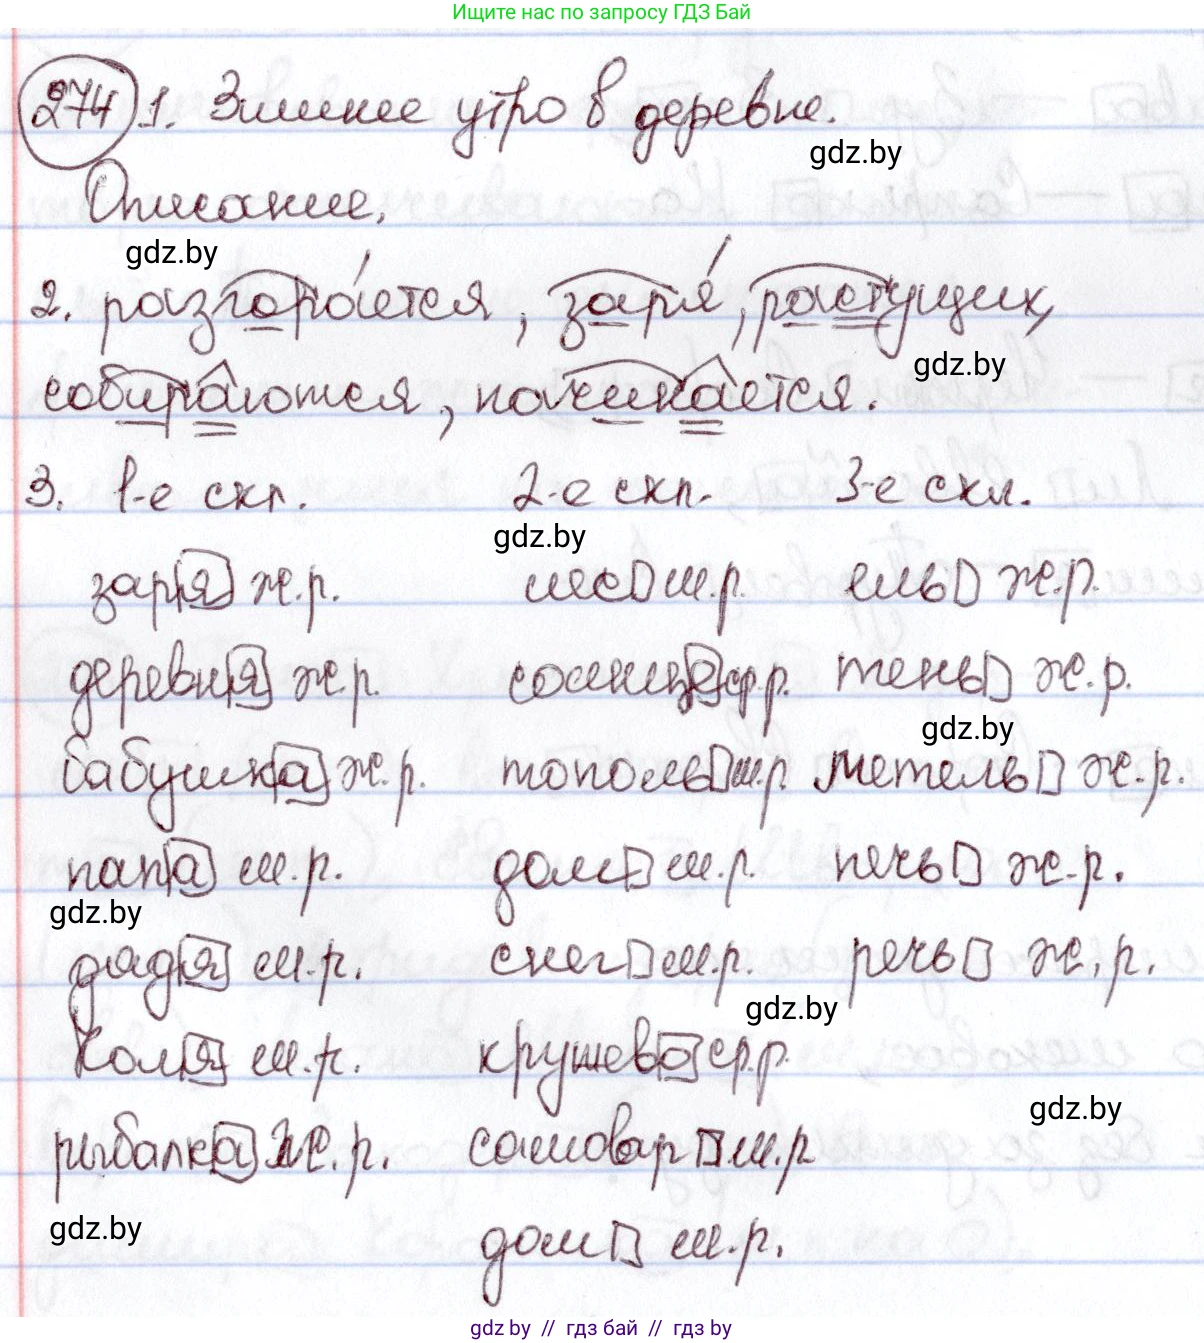 Ищите нас по запросу ГДЗ Бай
274 1. Зимнее утро в деревне.
gdz.by
Описание.
gdz.by
2. разгора́ется, заря́, растущих,
gdz.by
собираются, начинается.
3. 1-е скл. 2-е скл. 3-е скл.
gdz.by
заря ж.р. лес м.р. ель ж.р.
деревня ж.р. солнце ср.р. тень ж.р.
gdz.by
бабушка ж.р. тополь м.р метель ж.р.
папа м.р. дом м.р. печь ж.р.
gdz.by
дядя м.р. снег м.р. речь ж.р.
gdz.by
Коля м.р. кружево ср.р.
gdz.by
рыбалка ж.р. самовар м.р
gdz.by
дом м.р.
gdz.by // гдз бай // гдз by